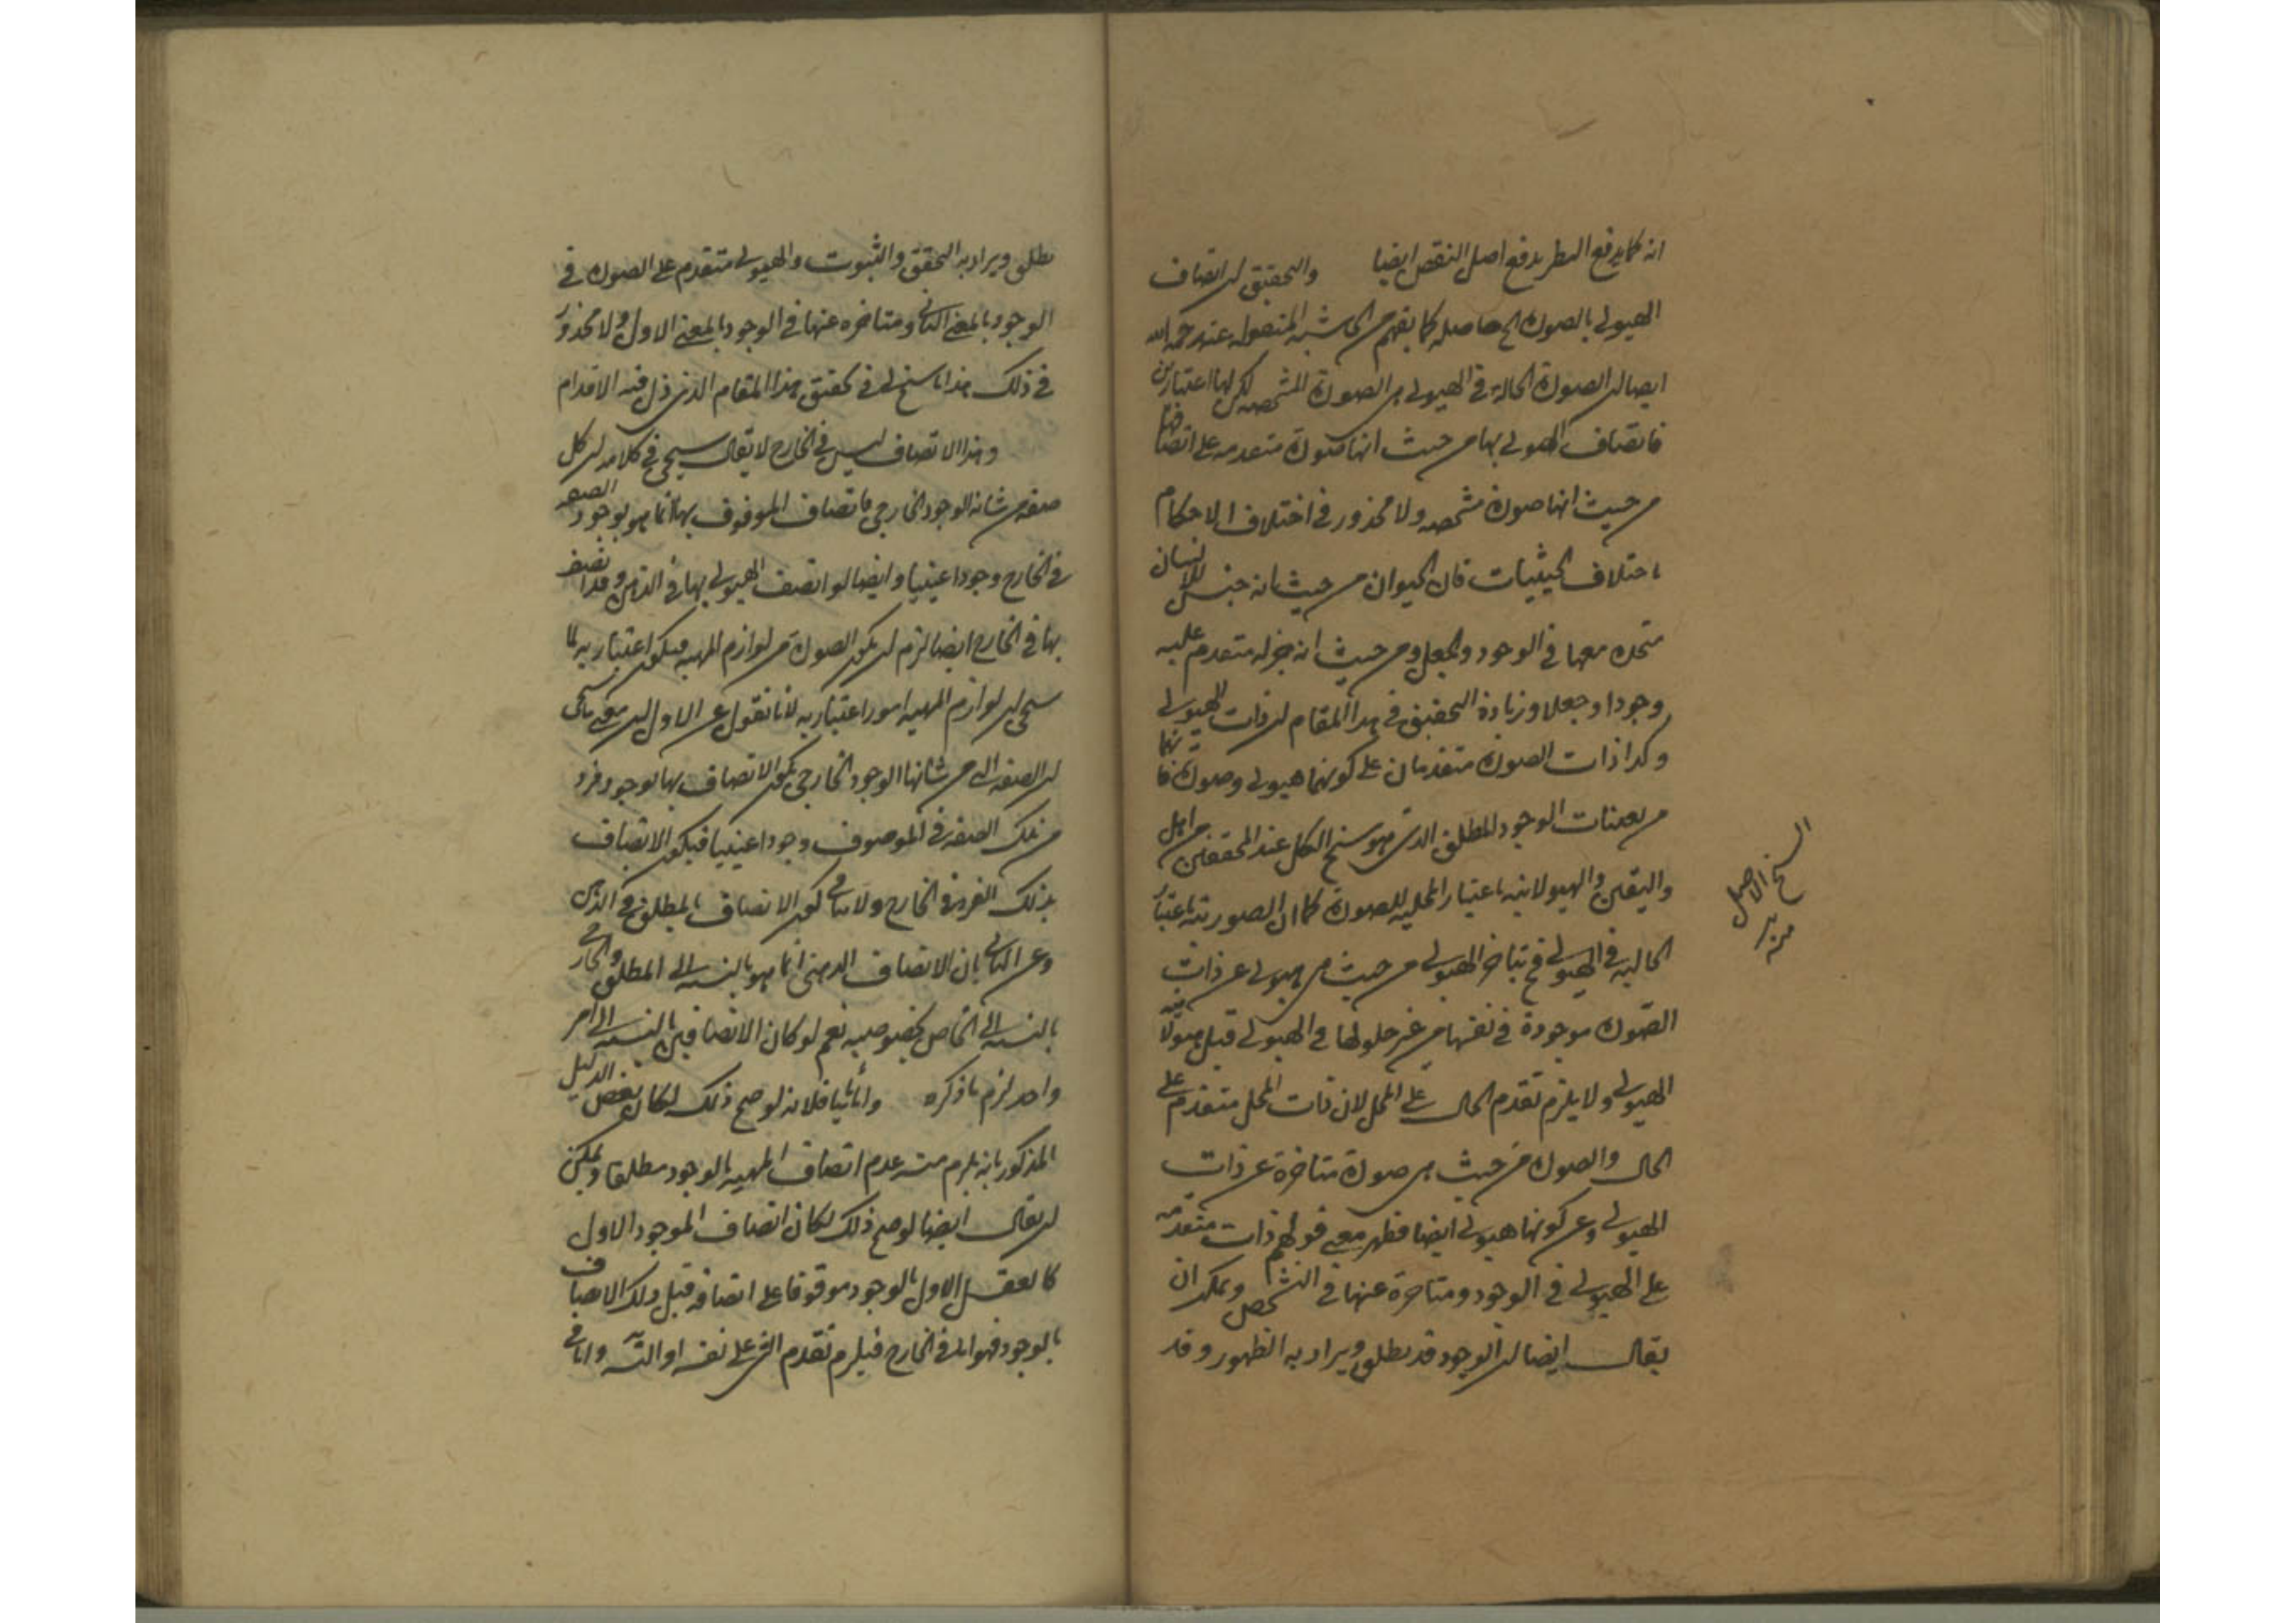 انه كما يدفع النظر يدفع اصل النقض ايضا والتحقيق ان اتصاف
الهيولى بالصورة الخ حاصله كما يفهم من الحاشية المنقولة عنه رحمه الله
ايضا ان الصورة الحالة في الهيولى هى الصورة المشخصة لكن لها اعتبارين
فاتصاف الهيولى بها من حيث انها صورة متقدمة على اتصافها
من حيث انها صورة مشخصة ولا محذور في اختلاف الاحكام
باختلاف الحيثيات فان الحيوان من حيث انه جنس للانسان
متحد معها في الوجود والجعل ومن حيث انه جزء له متقدم عليه
وجودا وجعلا وزيادة التحقيق في هذا المقام ان ذات الهيولى
وكذا ذات الصورة متقدمان على كونهما هيولى وصورة فانهما
من تعينات الوجود المطلق الذى هو سنخ الكل عند المحققين من اهل
واليقين والهيولانية باعتبار المحلية للصورة كما ان الصورية باعتبار
الحالية في الهيولى فح تتاخر الهيولى من حيث هى هيولى عن ذات
الصورة موجودة في نفسها من غير حلولها في الهيولى قبل هيولانية
الهيولى ولا يلزم تقدم الحال على المحل لان ذات المحل متقدم على
الحال والصورة من حيث هى صورة متاخرة عن ذات
الهيولى وعن كونها هيولى ايضا فظهر معنى قولهم ذات متقدمة
على الهيولى في الوجود ومتاخرة عنها في التشخص ويمكن ان
يقال ايضا ان الوجود قد يطلق ويراد به الظهور وقد
السنخ الاصل
يطلق ويراد به التحقق والثبوت والهيولى متقدم على الصورة في
الوجود بالمعنى الثانى ومتاخرة عنها في الوجود بالمعنى الاول ولا محذور
في ذلك هذا ما سنح لى في تحقيق هذا المقام الذى زل فيه الاقدام
وهذا الاتصاف ليس في الخارج لا يقال سيجئ في كلامه ان كل
صفة من شانه الوجود الخارجى فاتصاف الموصوف بها انما هو بوجود الصفة
في الخارج وجودا عينيا وايضا لو اتصف الهيولى بها في الذهن وقد اتصف
بها في الخارج ايضا لزم ان يكون الصورة من لوازم المهية فيكون اعتبارية لما
سيجئ ان لوازم المهية امور اعتبارية لانا نقول عن الاول ان معنى ما سيجئ
ان الصفة التى من شانها الوجود الخارجى يكون الاتصاف بها بوجود فرد
من تلك الصفة في الموصوف وجودا عينيا فيكون الاتصاف
بذلك الفرد في الخارج ولا ينافى كون الاتصاف بالمطلق في الذهن
وعن الثانى بان الاتصاف الذهنى انما هو بالنسبة الى المطلق والخارجى
بالنسبة الى الخاص بخصوصيه نعم لو كان الاتصافين بالنسبة الى امر
واحد لزم ما ذكره واما ثانيا فلانه لو صح ذلك لكان نقض الدليل
المذكور بانه يلزم منه عدم اتصاف المهية بالوجود مطلقا ويمكن
ان يقال ايضا لو صح ذلك لكان اتصاف الموجود الاول
كالعقل الاول بالوجود موقوفا على اتصافه قبل ذلك الاتصاف
بالوجود فهو اما في الخارج فيلزم تقدم الشئ على نفسه او التسه واما في